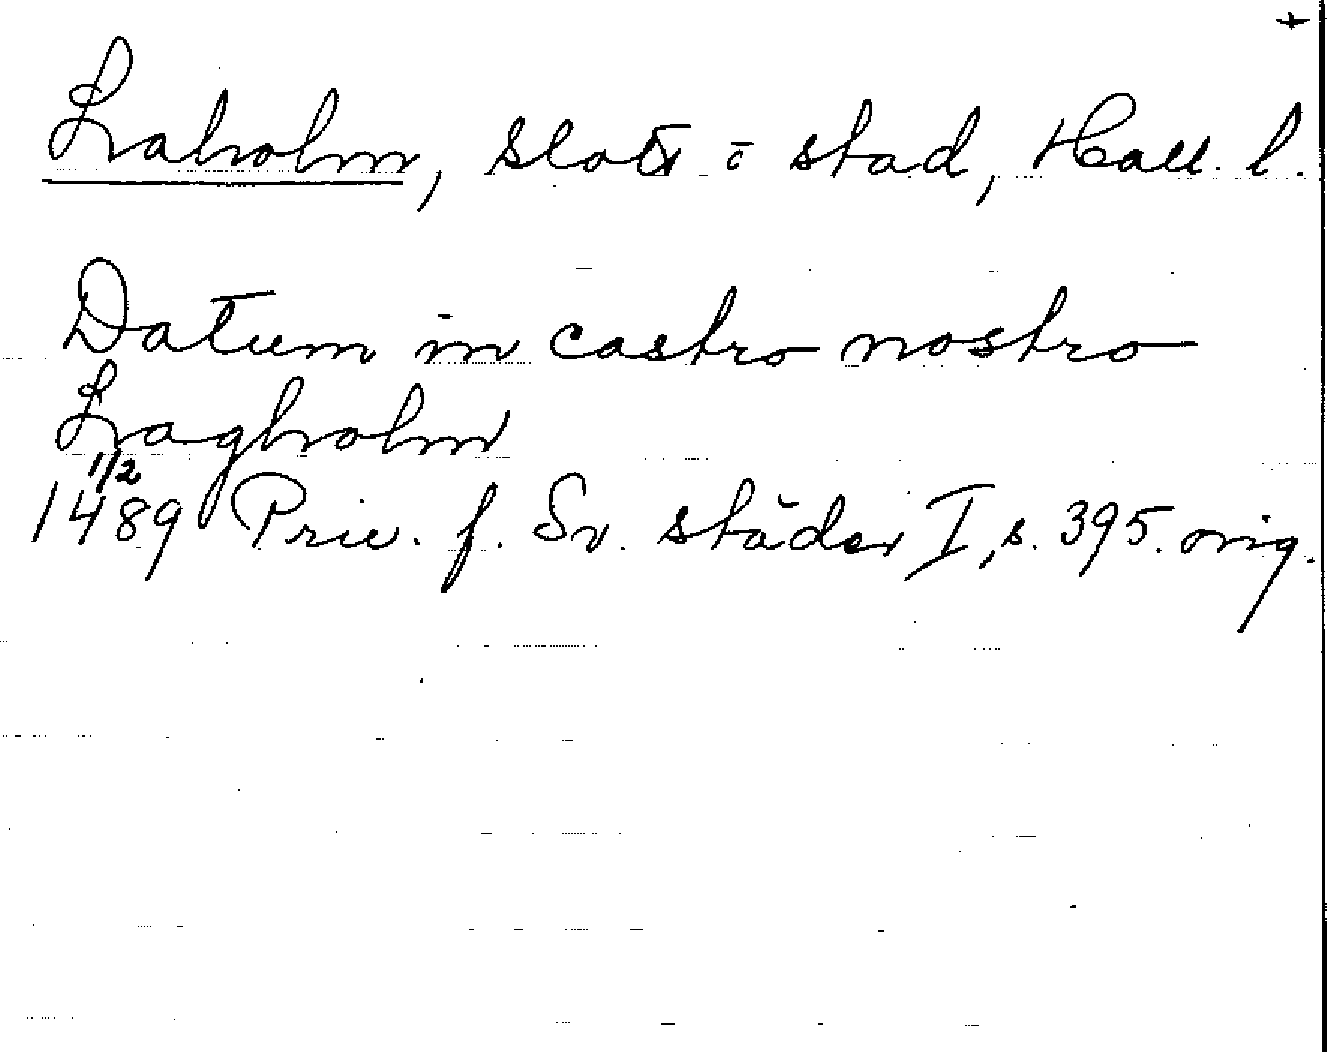 +
Laholm, slott o stad, Hall. l.
Datum in castro nostro
Lagholm
1/2
1489 Priv. f. Sv. städer I, s. 395. orig.